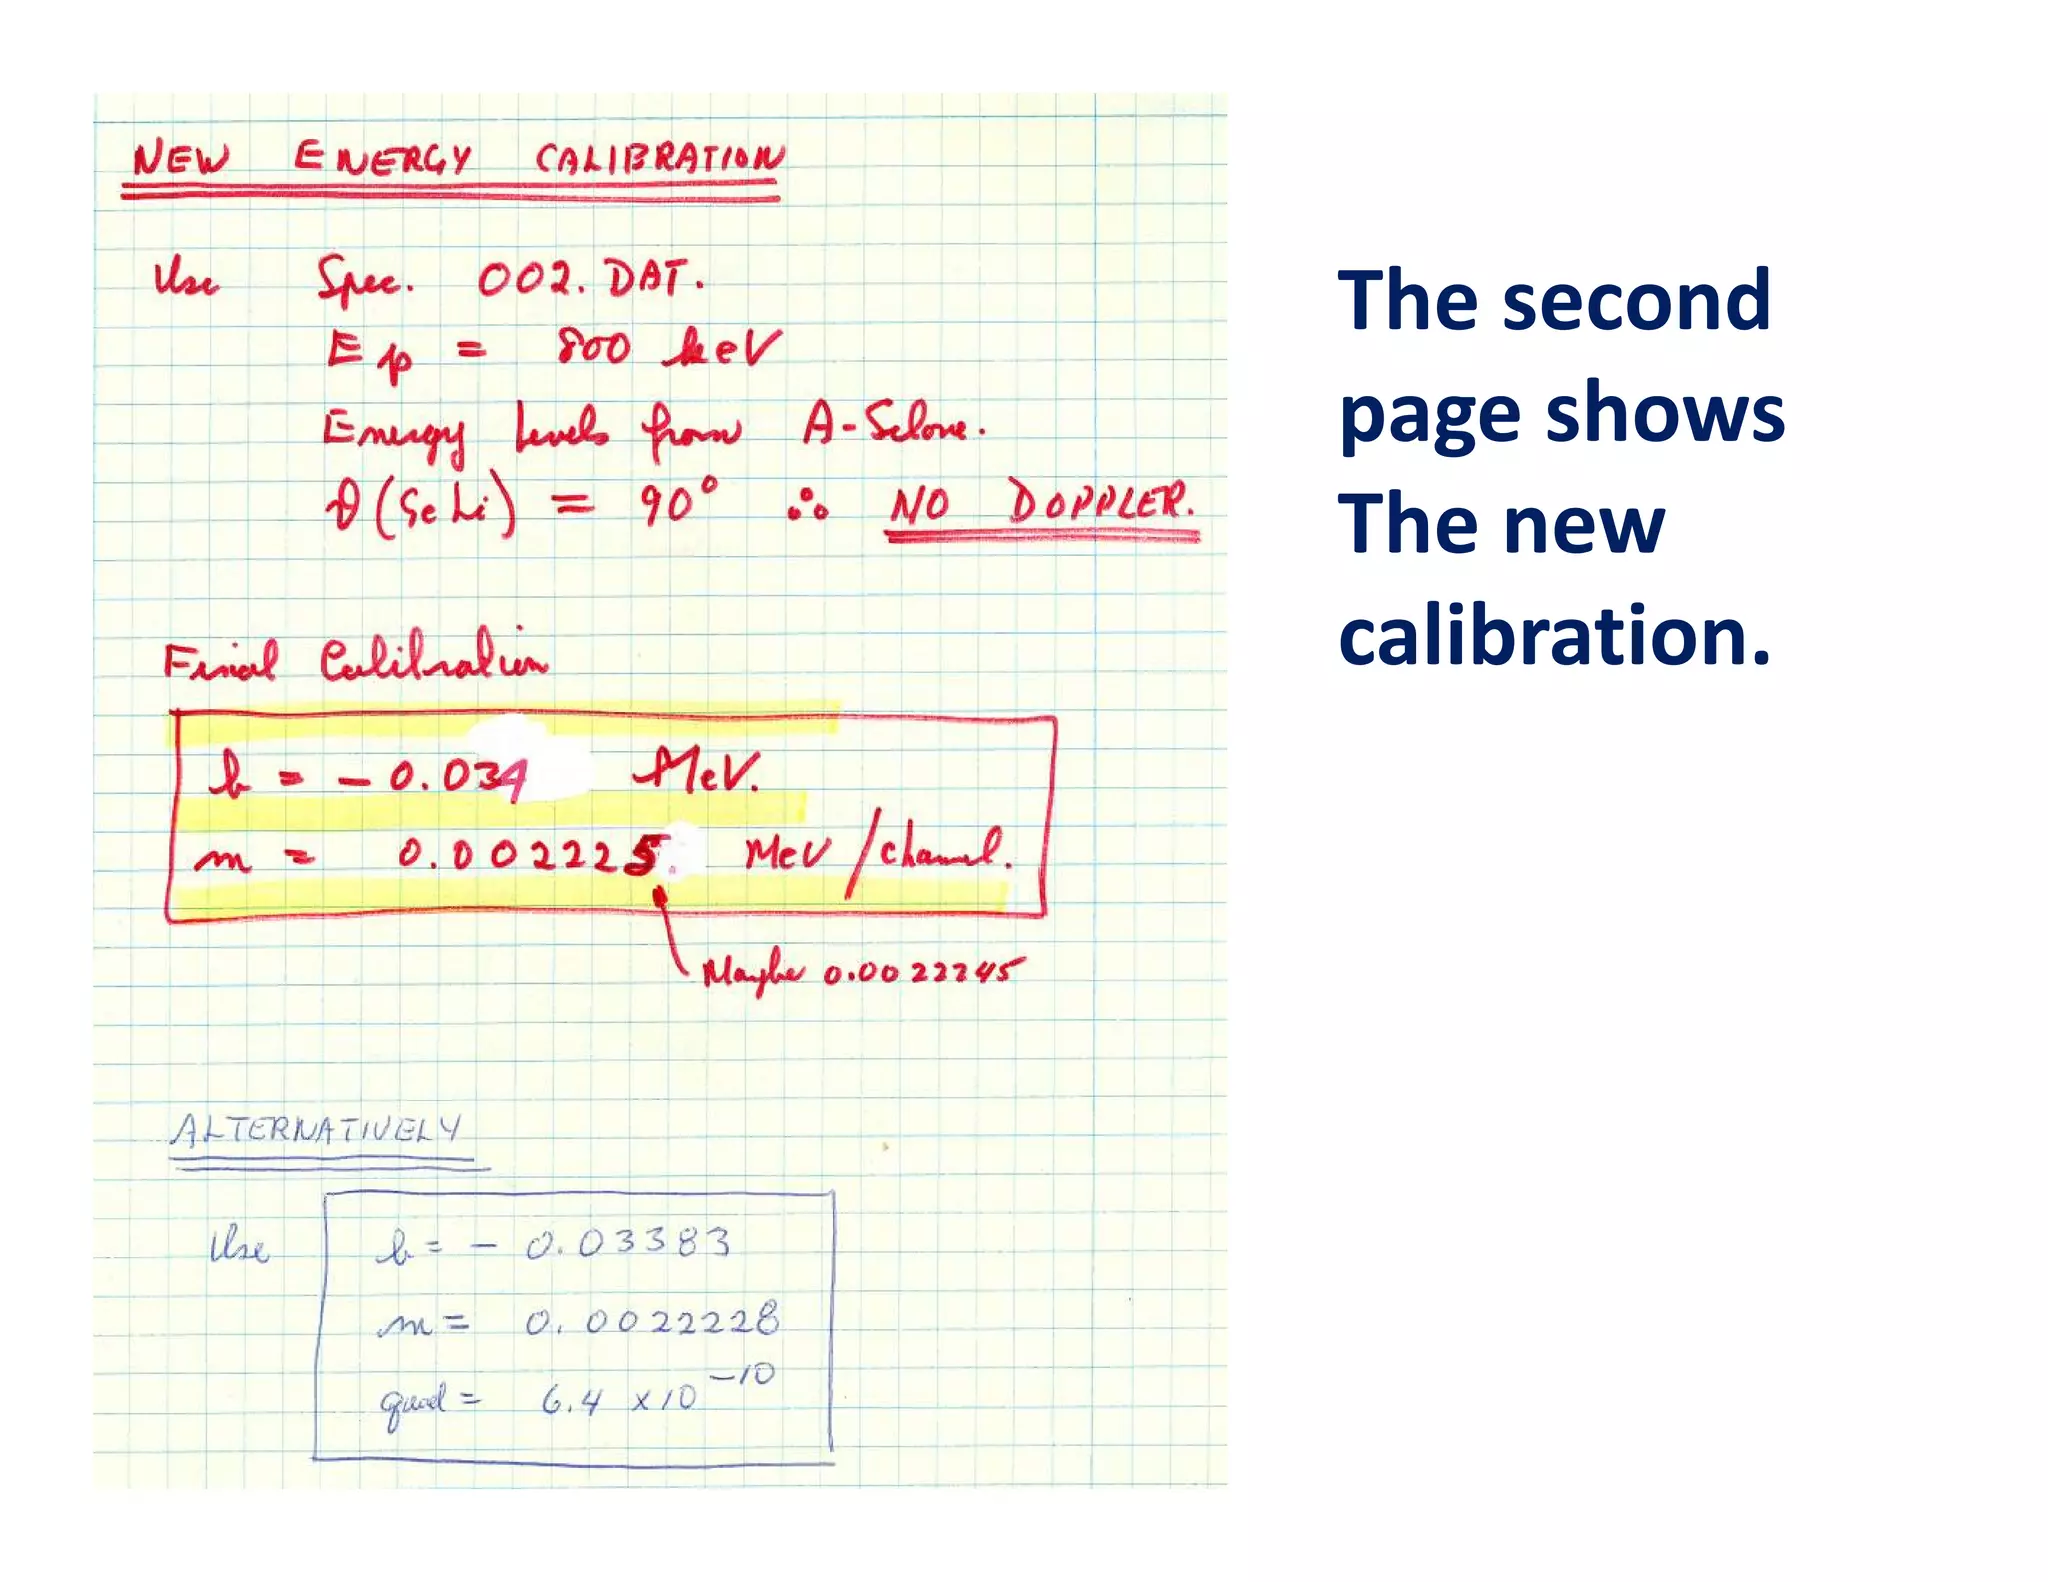 NEW ENERGY CALIBRATION
Use Spec. 002.DAT.
Ep = 800 keV
Energy levels from A-Selove.
θ(GeLi) = 90° ∴ NO DOPPLER.
Final Calibration
b = - 0.034 MeV.
m = 0.002225. MeV/channel.
Maybe 0.0022245
ALTERNATIVELY
Use b = - 0.03383
m = 0.0022228
quad = 6.4 x 10⁻¹⁰
The second
page shows
The new
calibration.